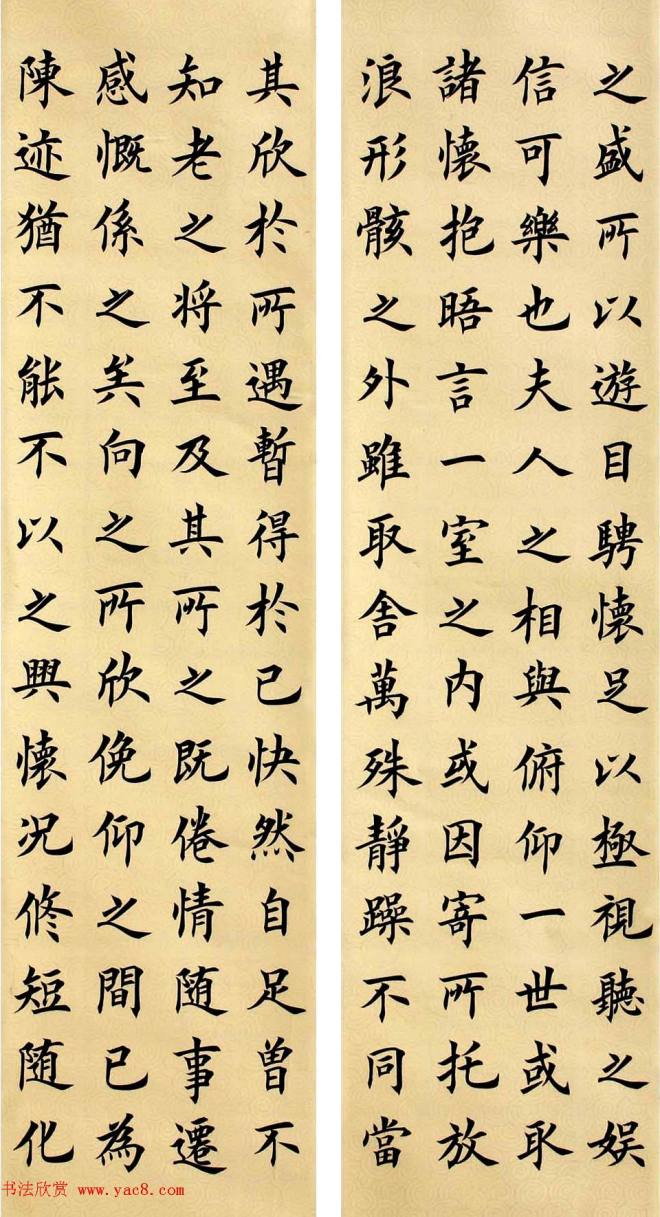 之盛所以遊目騁懷足以極視聽之娱
信可樂也夫人之相與俯仰一世或取
諸懷抱晤言一室之内或因寄所托放
浪形骸之外雖取舍萬殊靜躁不同當
其欣於所遇暫得於己快然自足曾不
知老之将至及其所之既倦情随事遷
感慨係之矣向之所欣俛仰之間已為
陳迹猶不能不以之興懷况脩短随化
书法欣赏 www.yac8.com